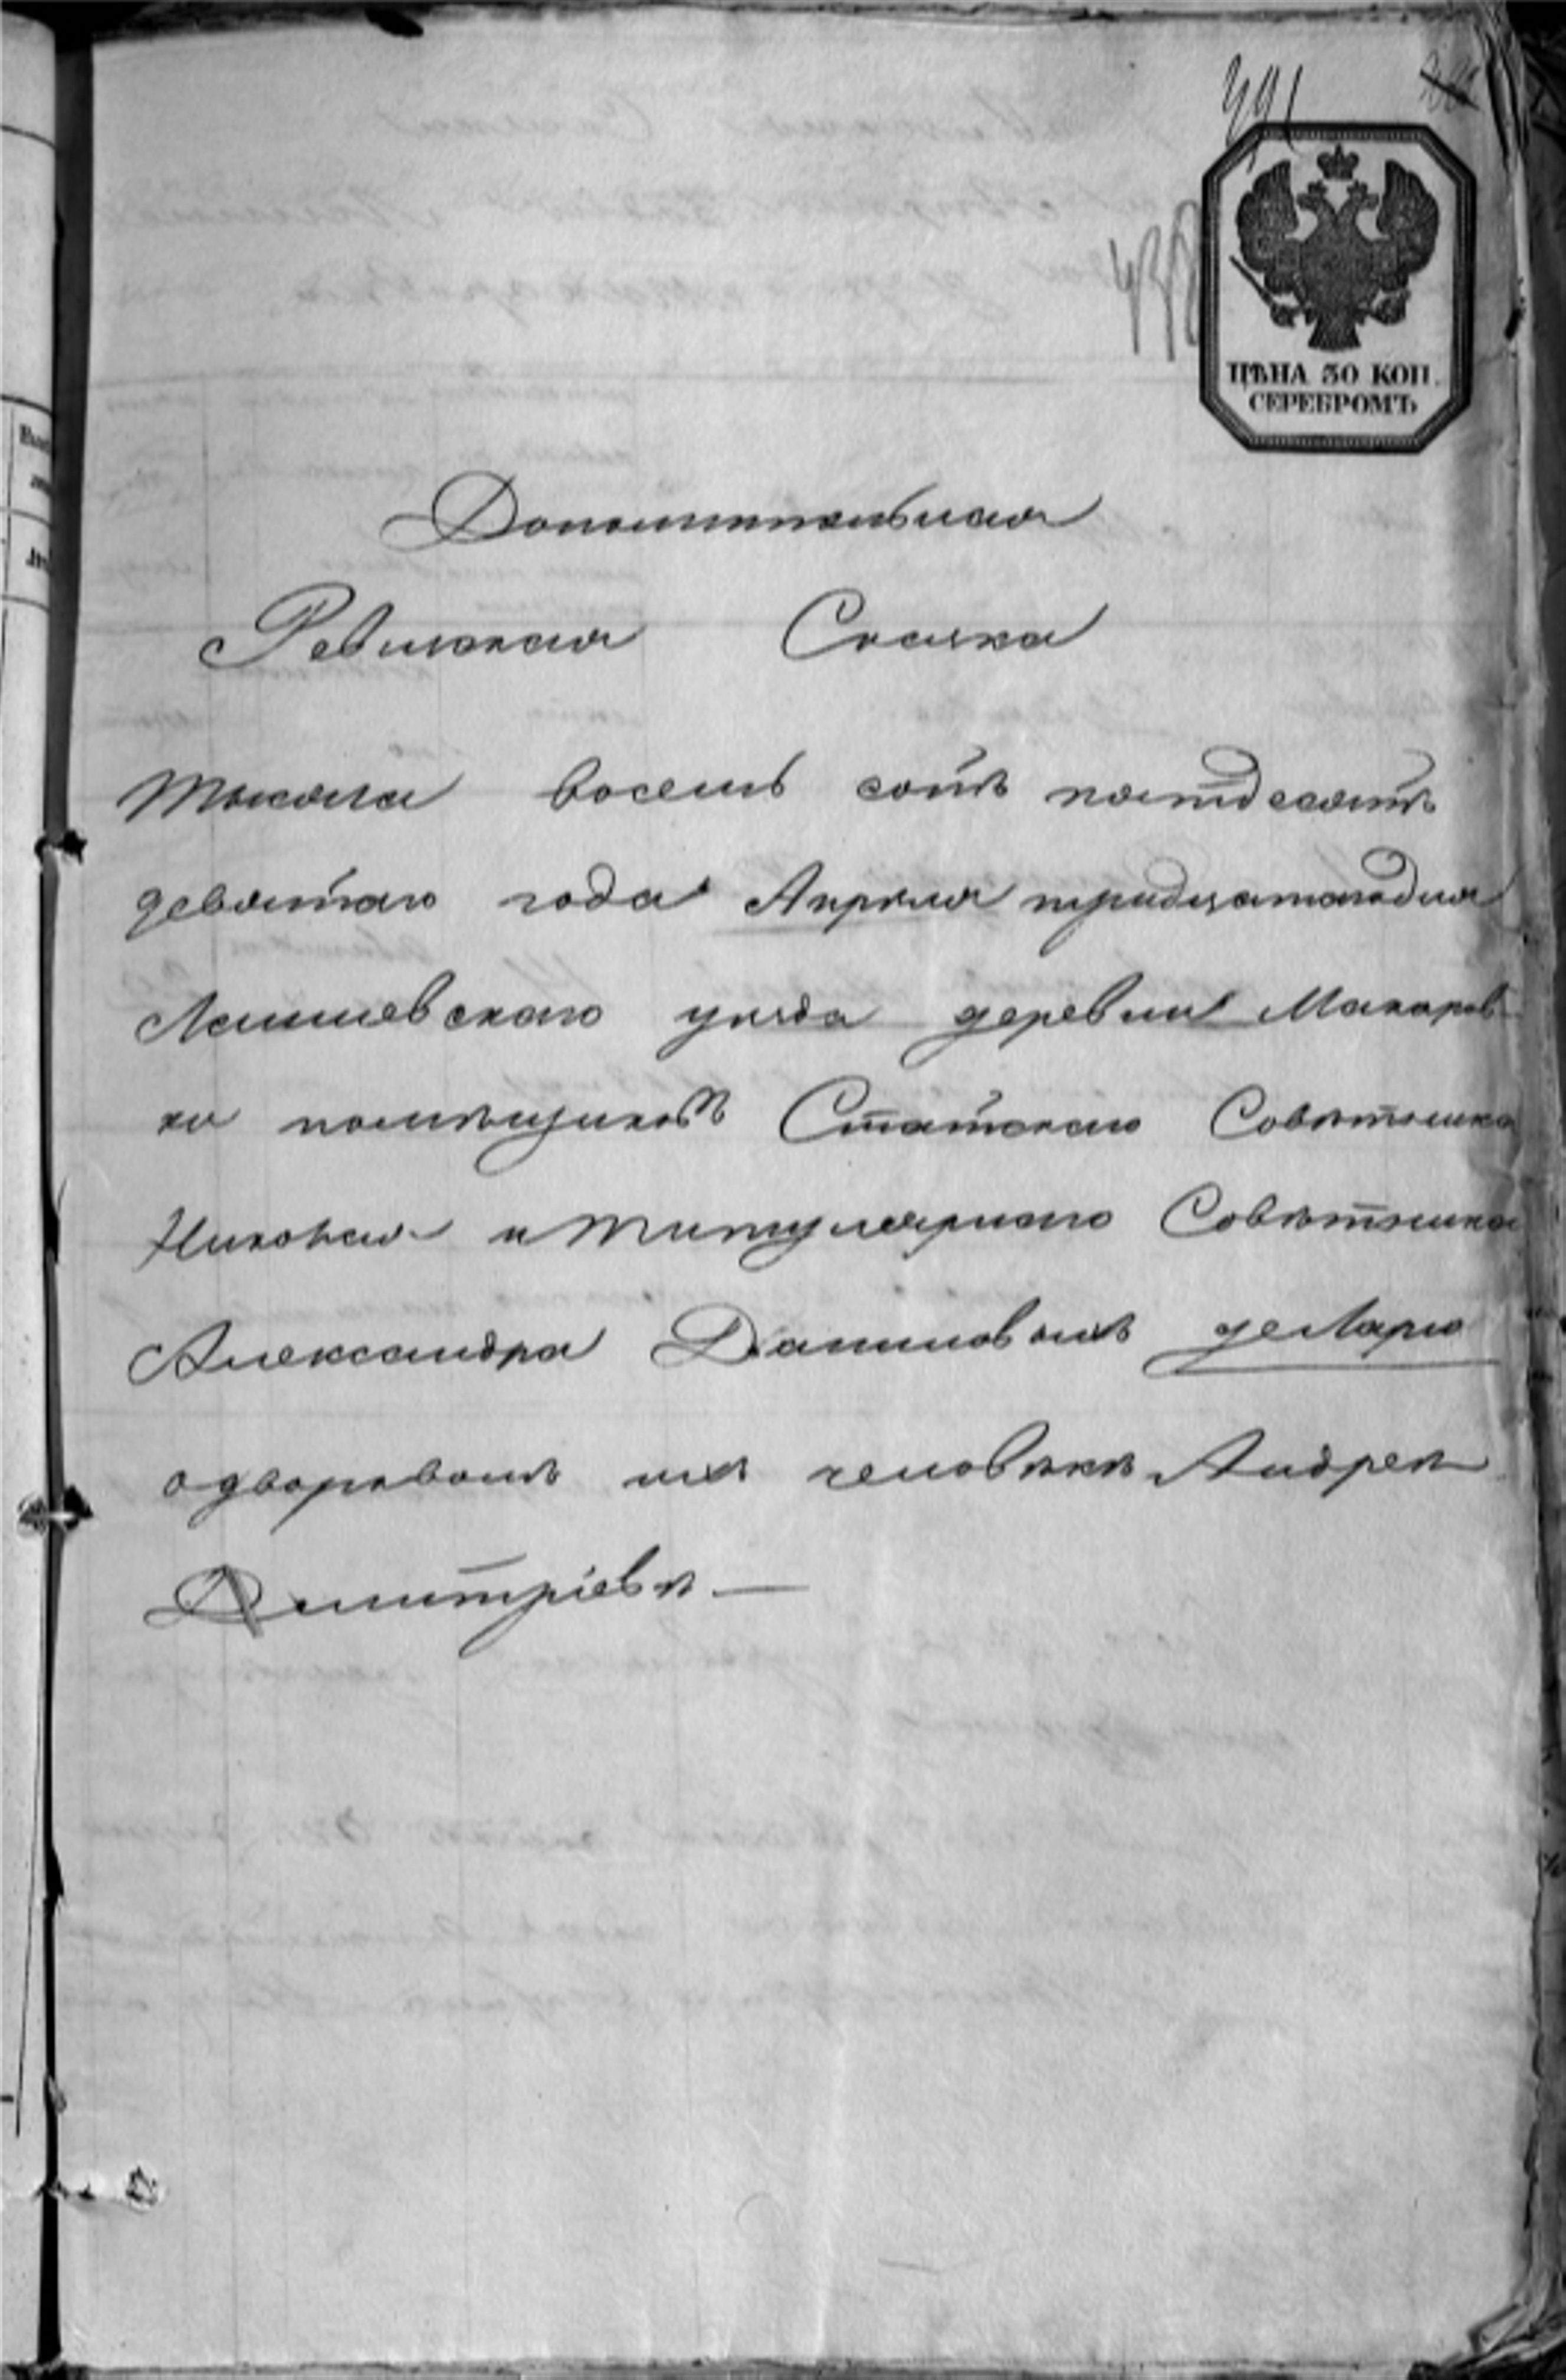 491
ЦѢНА 30 КОП.
СЕРЕБРОМЪ
Дополнительная
Ревизская Сказка
Тысяча восемь сотъ пятьдесятъ
девятаго года Апрѣля тридцатагодня
Лаишевскаго уѣзда деревни Макаров
ки помѣщиковъ Статскаго Совѣтника
Николая и Титулярнаго Совѣтника
Александра Даниловыхъ деЛарю
одворовомъ ихъ человѣкѣ Андреѣ
Дмитріевѣ —